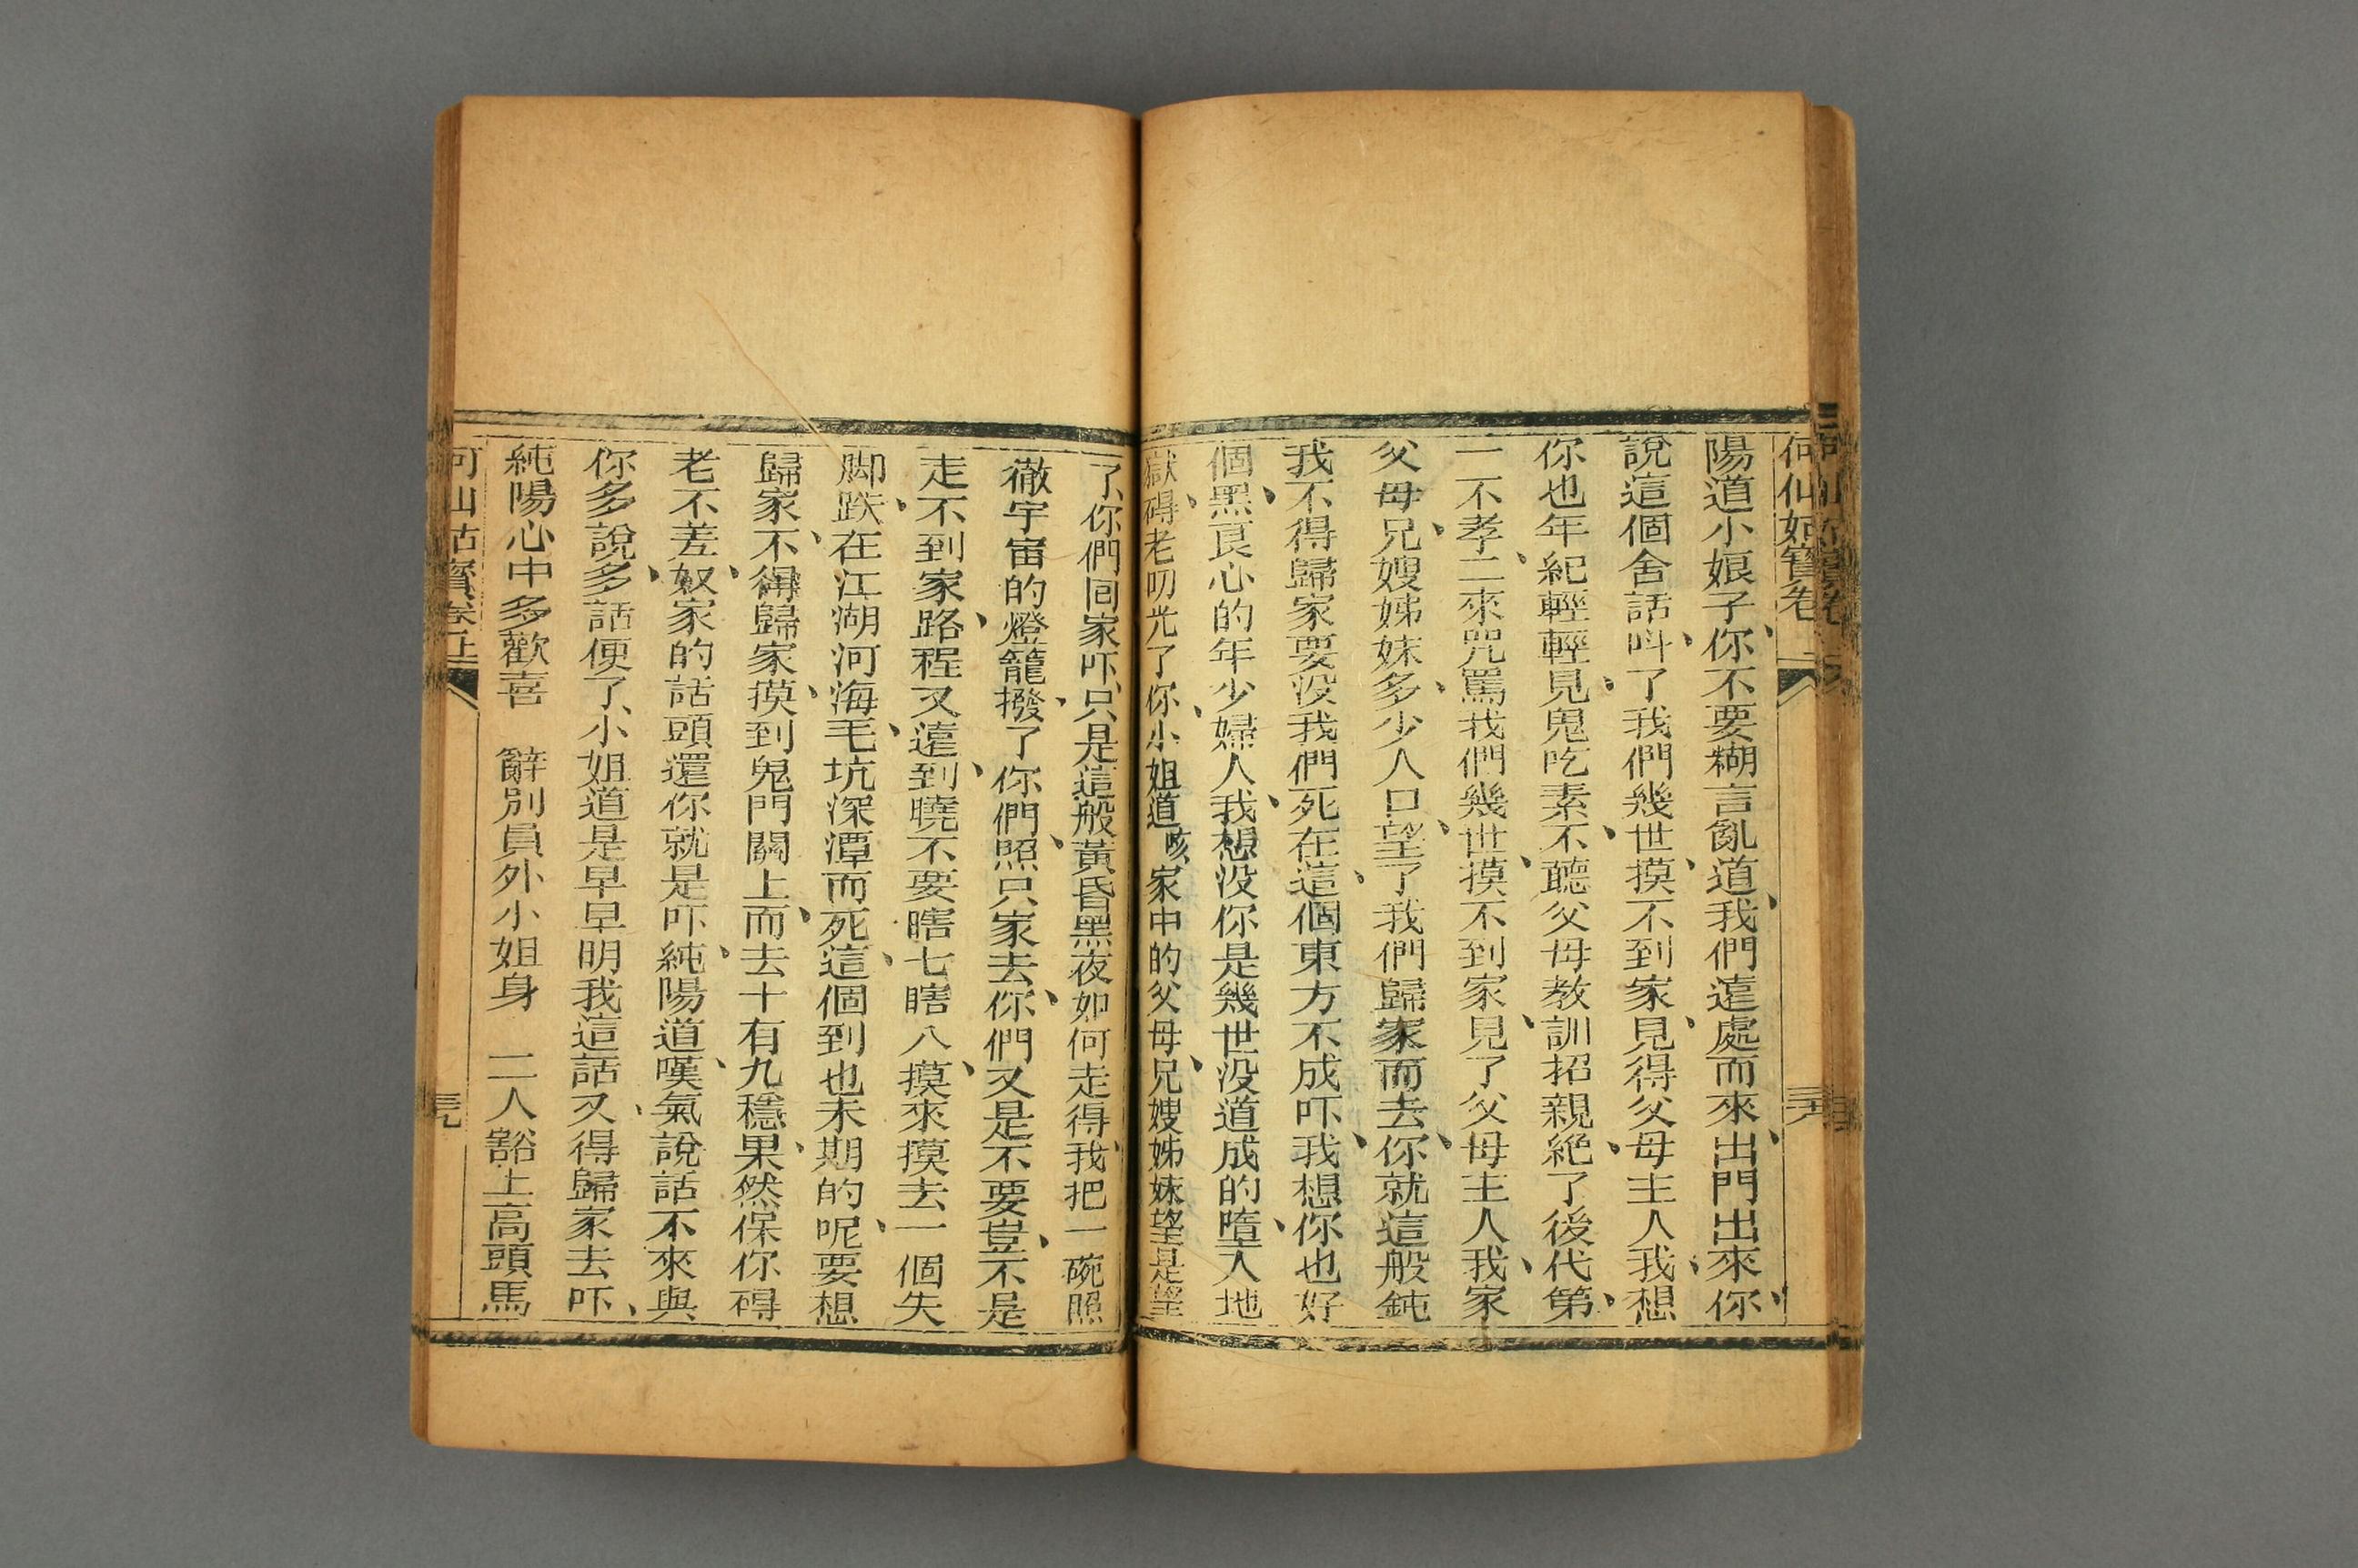 何仙姑寶卷
陽道小娘子、你不要糊言亂道、我們遠處而來、出門出來、你
說這個舍話呌、了我們幾世、摸不到家、見得父母主人、我想
你也年紀輕輕、見鬼吃素、不聽父母教訓招親、絕了後代、第
一不孝、二來咒罵我們幾世、摸不到家、見了父母主人、我家
父母兄、嫂姊妹多、少人口望、了我們歸家而去、你就這般鈍
我不得歸家要没我們死在這、個東方不成吓、我想你也好
個黑、良心的年少婦人、我想没你是幾世没道成的、墮入地
獄、碍老叨光了、你小姐道咳家中的父母、兄嫂姊妹望是望
了、你們回家吓、只是這般黃昏黑夜如何走得、我把一碗照
徹宇宙的燈籠、撥了你們、照只家去、你們又是不要、豈不是
走不到家、路程又遠、到曉不要瞎七瞎八、摸來摸去一個失
脚、跌在江湖河海、毛坑深潭而死、這個到也未期的、呢要想
歸家、不得歸家、摸到鬼門關上、而去十有九穩、果然保你碍
老不差、奴家的話頭還你就是吓、純陽道、嘆氣說話不來與
你多說、多話便了、小姐道是早早明我這話、又得歸家去吓、
純陽心中多歡喜　辭別員外小姐身　二人豁上高頭馬